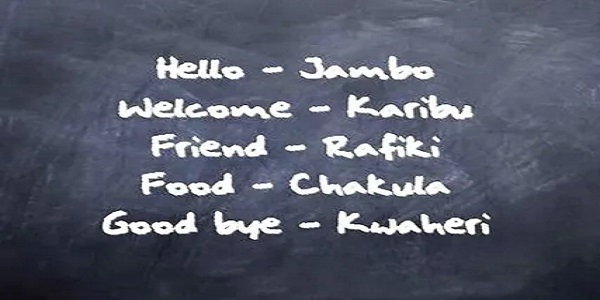 Hello - Jambo
Welcome - Karibu
Friend - Rafiki
Food - Chakula
Good bye - Kwaheri